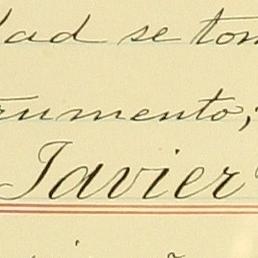 dad se tom
rumento,
Javier